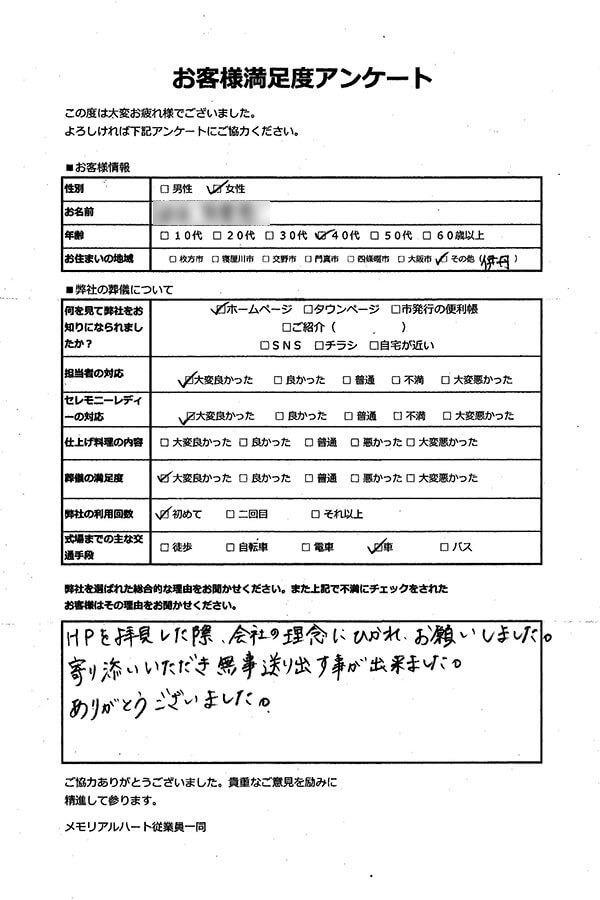 お客様満足度アンケート
この度は大変お疲れ様でございました。
よろしければ下記アンケートにご協力ください。
■お客様情報
性別 □男性 ☑女性
お名前
年齢 □10代 □20代 □30代 ☑40代 □50代 □60歳以上
お住まいの地域 □枚方市 □寝屋川市 □交野市 □門真市 □四條畷市 □大阪市 ☑その他(伊丹)
■弊社の葬儀について
何を見て弊社をお知りになられましたか？
☑ホームページ □タウンページ □市発行の便利帳
□ご紹介（ ）
□SNS □チラシ □自宅が近い
担当者の対応 ☑大変良かった □良かった □普通 □不満 □大変悪かった
セレモニーレディーの対応 ☑大変良かった □良かった □普通 □不満 □大変悪かった
仕上げ料理の内容 □大変良かった □良かった □普通 □悪かった □大変悪かった
葬儀の満足度 ☑大変良かった □良かった □普通 □悪かった □大変悪かった
弊社の利用回数 ☑初めて □二回目 □それ以上
式場までの主な交通手段 □徒歩 □自転車 □電車 ☑車 □バス
弊社を選ばれた総合的な理由をお聞かせください。また上記で不満にチェックをされた
お客様はその理由をお聞かせください。
HPを拝見した際、会社の理念にひかれ、お願いしました。
寄り添いいただき無事送り出す事が出来ました。
ありがとうございました。
ご協力ありがとうございました。貴重なご意見を励みに
精進して参ります。
メモリアルハート従業員一同